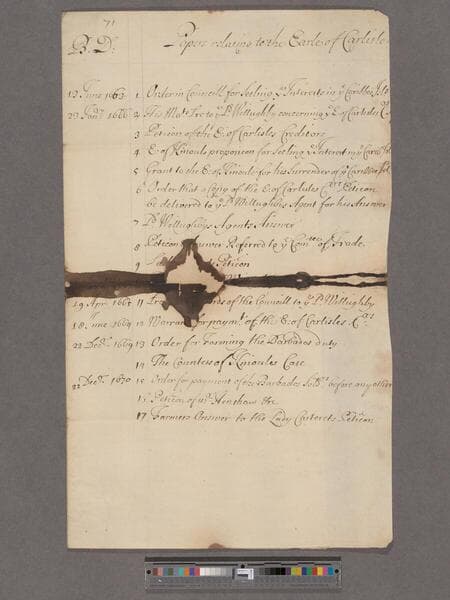 71
B. D. Papers relating to the Earle of Carlisle
13 June 1663 1 Order in Councill for setling yᵉ Interests in yᵉ Caribbee
2 His Maᵗˢ Lre to yᵉ Lᵈ Willughby concerning yᵉ E of Carlisles
3 Peticon of the E: of Carlisles Creditors
4 E: of Kinouls proposicon for Setling yᵉ Interest in yᵉ
5 Grant to the E: of Kinoule for his Surrender of yᵉ Caribbee
6 Order that a Copy of the E: of Carlisles Peticon
be delivered to yᵉ Lᵈ Willughbys Agent for his Answer
7 Lᵈ Willughbys Agents Answer
8 Peticon Answer Referred to yᵉ Comᵗᵉᵉ of Trade
9 Peticon
29 Apr. 1667 11 of the Councill to yᵉ Lᵈ Willughby
18 1669 12 Warrant for paymᵗ of the E: of Carlisles
22 Decᵇ. 1669 13 Order for Farming the Barbados duty
14 The Countess of Kinoules Case
22 Decᵇ. 1670 15 Order for payment of the Barbados before any other
15 Peticon of
17 Farmers Answer to the Lady Carterets Peticon